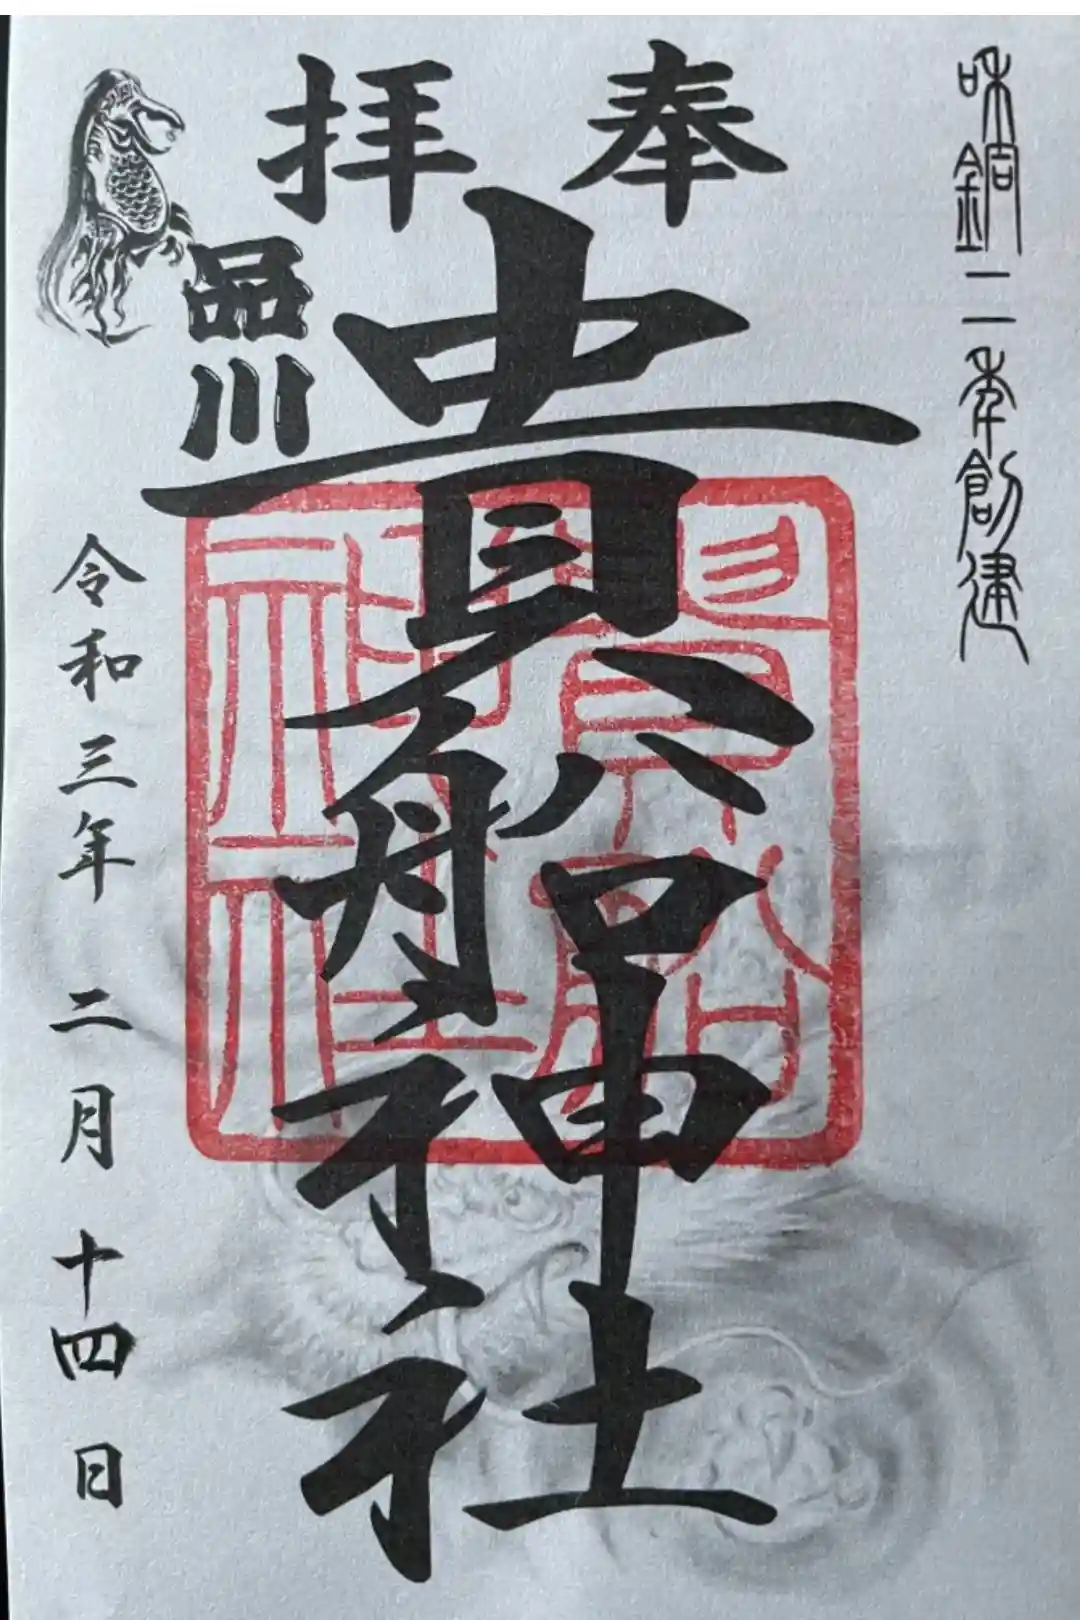 和銅二年創建
奉拝
貴船神社
貴船神社
品川
令和三年 二月 十四日